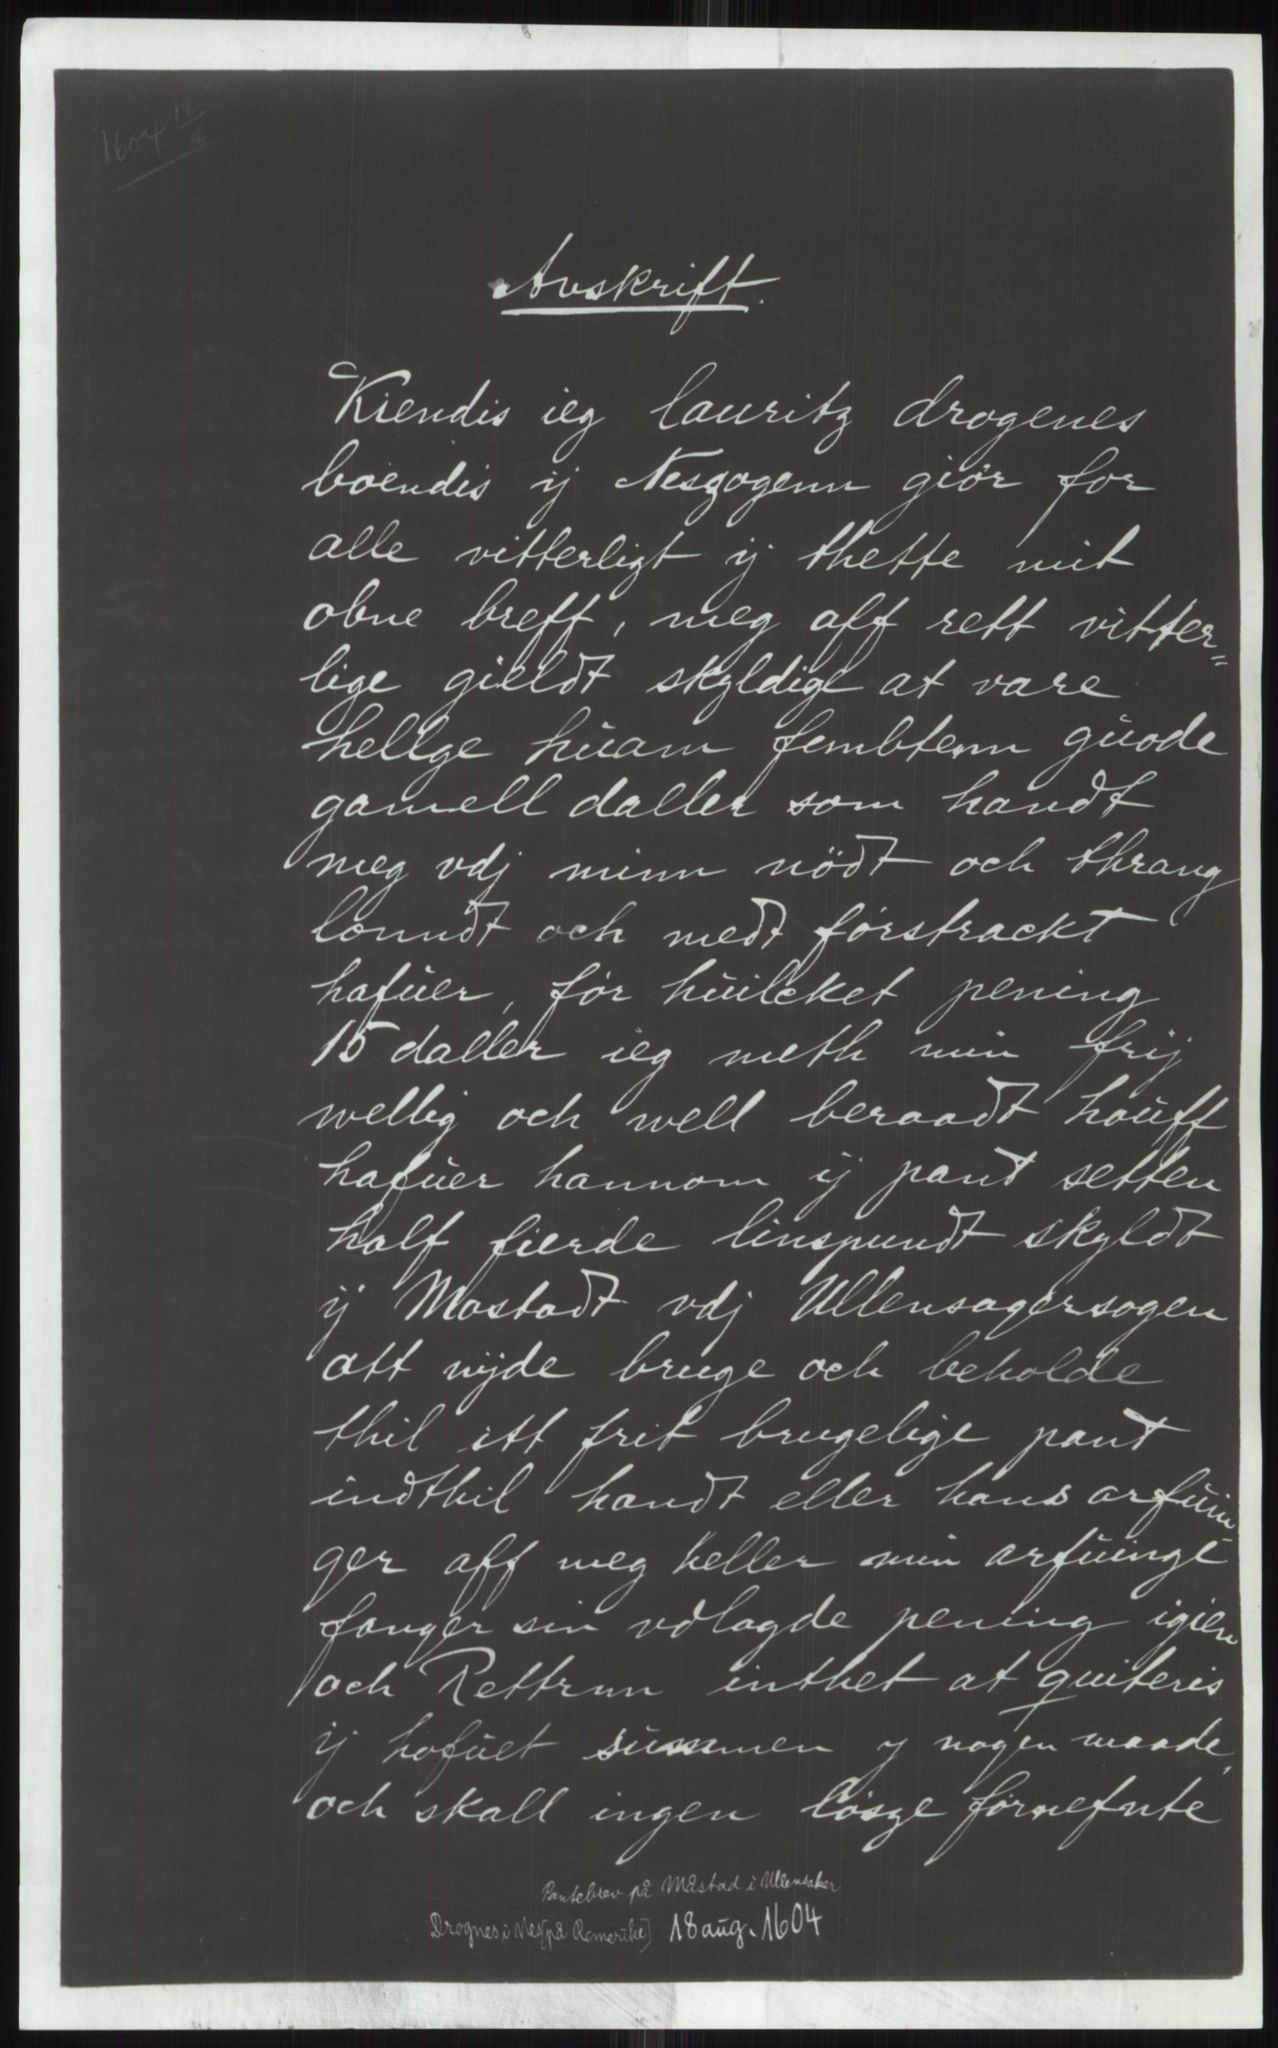 1604 18/8
Avskrift.
Kiendis ieg lauritz drogenes
boendis ij Neszogenn giör for
alle vitterligt ij thette mit
obne breff, meg aff rett vitter=
lige gieldt skyldige at vare
hellge huam fembtenn guode
gamell daller som handt
meg vdj minn nödt och thrang
lonndt och medt förstrackt
hafuer, för huilcket pening
15 daller ieg meth min frij
wellig och well beraadt houff
hafuer hannom ij pant setten
half fierde linspundt skyldt
ij Mostadt vdj Ullensagersogen
att nijde bruge och beholde
thil itt frit brugelige pant
indthil handt eller hans arfuin
ger aff meg heller min arfuinge
fanger sin vdlagde pening igien
och Rettrnn inthet at quiteris
ij hofuet summen y nogen maade,
och skall ingen lösze förnefnte
Pantebrev på Måstad i Ullensaker
Drognes i Nes [på Romerike] 18 aug. 1604